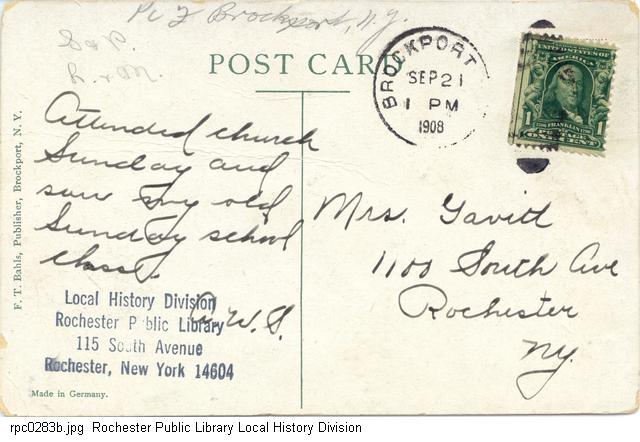 Pc Z Brockport, N.Y.
POST CARD
BROCKPORT
SEP 21
1 PM
1908
UNITED STATES OF
AMERICA
FRANKLIN
1 POSTAGE 1
ONE CENT
Attended church
Sunday and
saw my old
Sunday school
class.
W. S.
Mrs. Tavitt
1100 South Ave
Rochester
NY.
F. T. Bahls, Publisher, Brockport, N. Y.
Local History Division
Rochester Public Library
115 South Avenue
Rochester, New York 14604
Made in Germany.
rpc0283b.jpg Rochester Public Library Local History Division